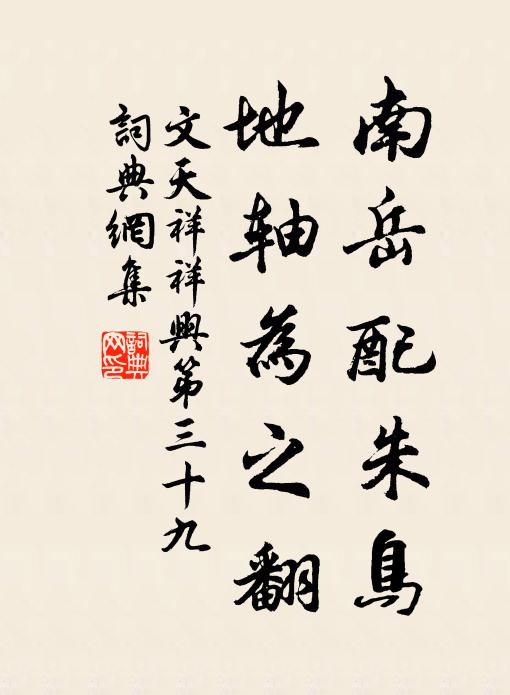 南岳配朱鳥
地轴為之翻
文天祥祥興第三十九
詞典網集
詞典网印